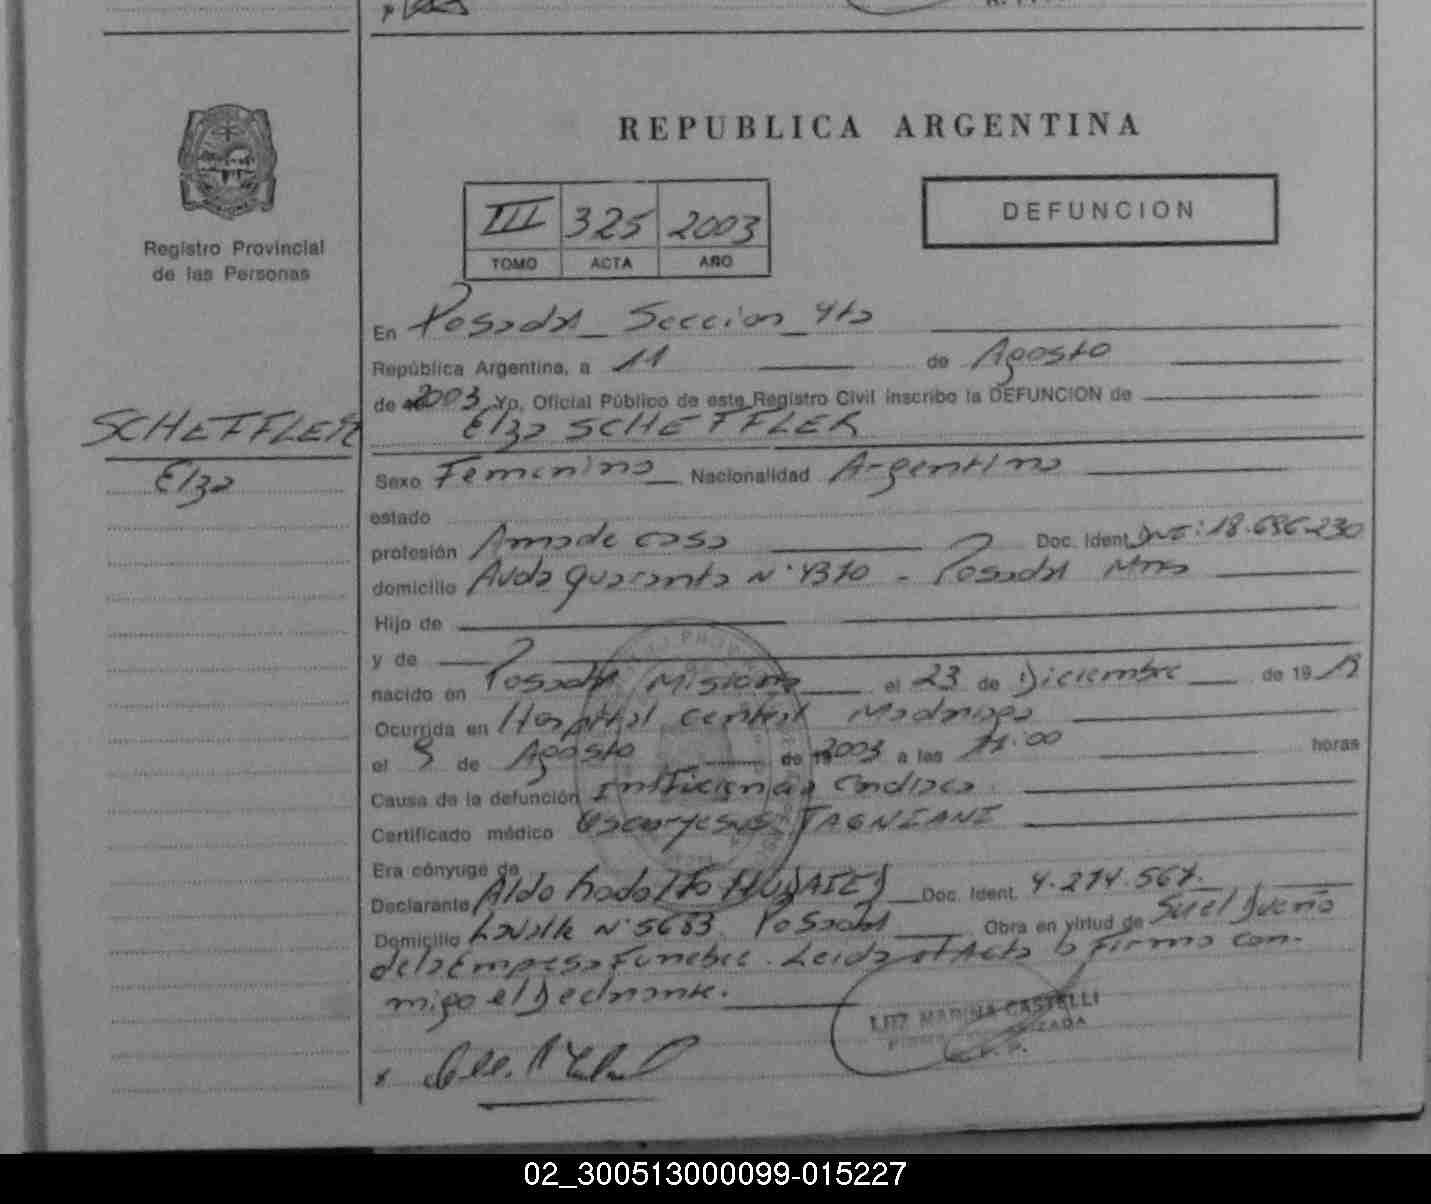 REPUBLICA ARGENTINA
III 325 2003
TOMO ACTA AÑO
DEFUNCION
Registro Provincial
de las Personas
SCHEFFLER
Elza
En Posadas Seccion 4ta
República Argentina, a 11 de Agosto
de 2003 Yo, Oficial Público de este Registro Civil inscribo la DEFUNCION de
Elza SCHEFFLER
Sexo Femenino Nacionalidad Argentina
estado
profesión Ama de casa Doc. Ident. DNI: 18.696.230
domicilio Avda Quaranta N° 4370 - Posadas Mnes
Hijo de
y de
nacido en Posadas Misiones el 23 de Diciembre de 19 19
Ocurrida en Hospital Central Madariaga
el 9 de Agosto de 2003 a las 21:00 horas
Causa de la defunción Insuficiencia Cardiaca
Certificado médico Oscar Jesus TAGNIANI
Era cónyuge de
Declarante Aldo Rodolfo Doc. Ident. 4.274.567.
Domicilio Lavalle N° 5683 Posadas Obra en virtud de Ser el Dueño
de la Empresa Funebre. Leida el Acta la Firma Con-
migo el Declarante.
LUZ MARINA CASTELLI
02_300513000099-015227